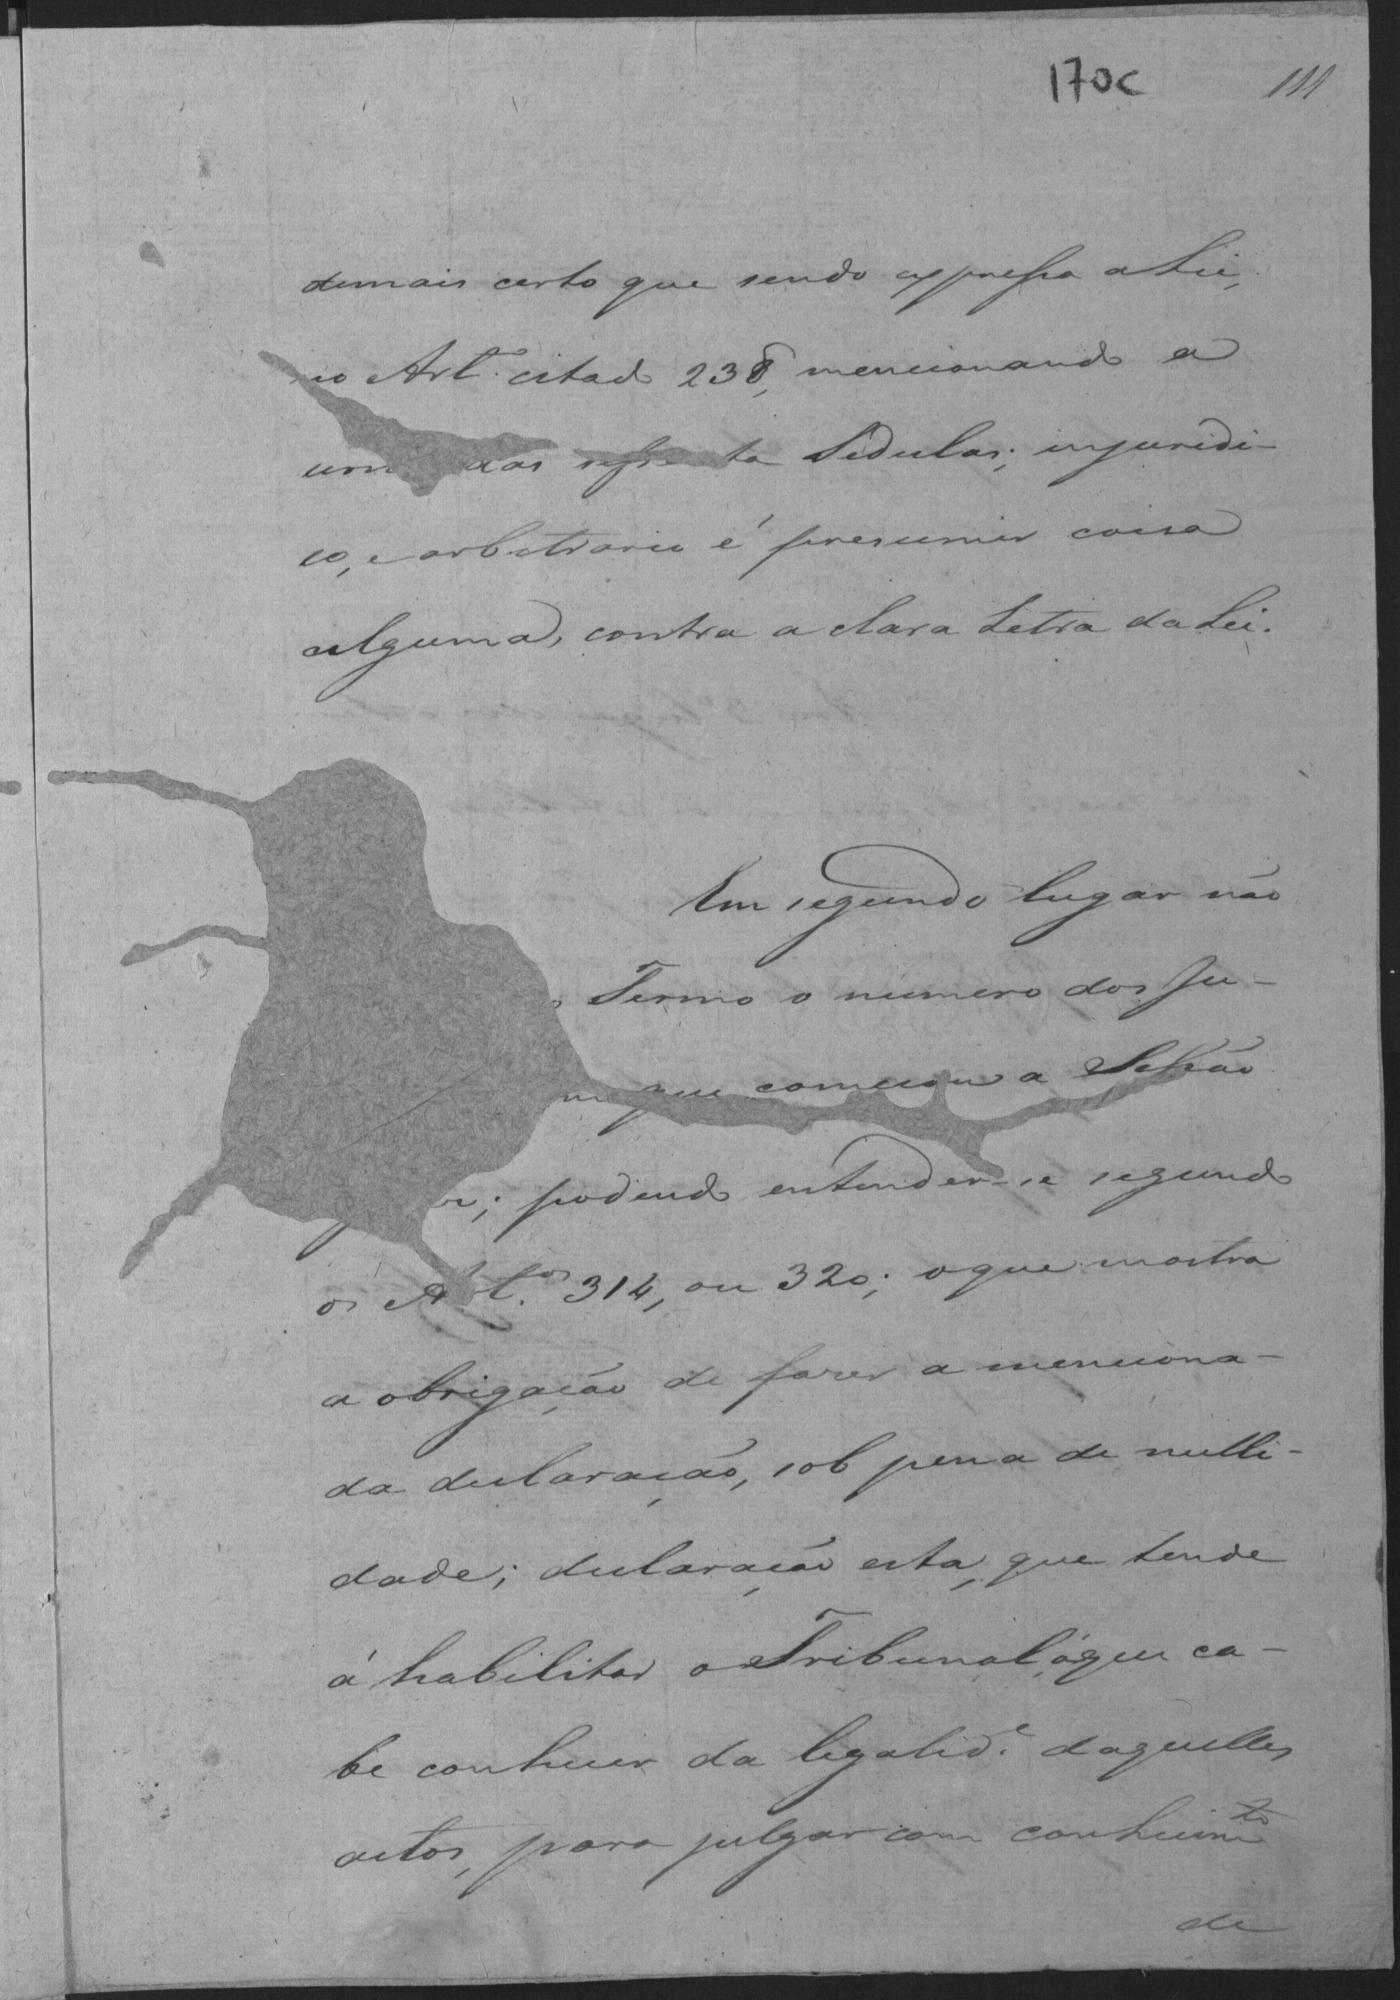 170c 111
demais certo que sendo expressa a Lei,
no Art.º citado 238, mencionando a
urna das sessenta Sedulas; injuridi-
co, e arbitrario é presumir coisa
alguma, contra a clara Letra da Lei.
Em segundo lugar não
Termo o numero dos Ju-
que comecou a Sessão
; podendo entender-se segundo
os Art.os 314, ou 320; o que mostra
a obrigação de fazer a menciona-
da declaração, sob pena de nulli-
dade; declaração esta, que tende
á habilitar o Tribunal, á quem ca-
be conhecer da legalid.e daquelles
actos, para julgar com conhecim.to
de